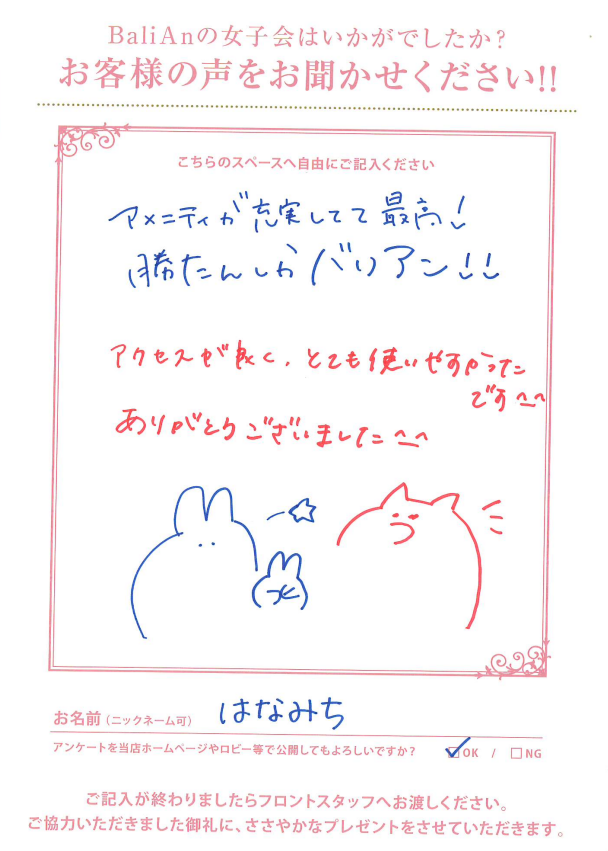 BaliAnの女子会はいかがでしたか？
お客様の声をお聞かせください!!
こちらのスペースへ自由にご記入ください
アメニティが充実してて最高!
勝たんしかバリアン!!
アクセスが良く、とても使いやすかった
です^^
ありがとうございました^^
お名前（ニックネーム可） はなみち
アンケートを当店ホームページやロビー等で公開してもよろしいですか？ ☑OK / □NG
ご記入が終わりましたらフロントスタッフへお渡しください。
ご協力いただきました御礼に、ささやかなプレゼントをさせていただきます。